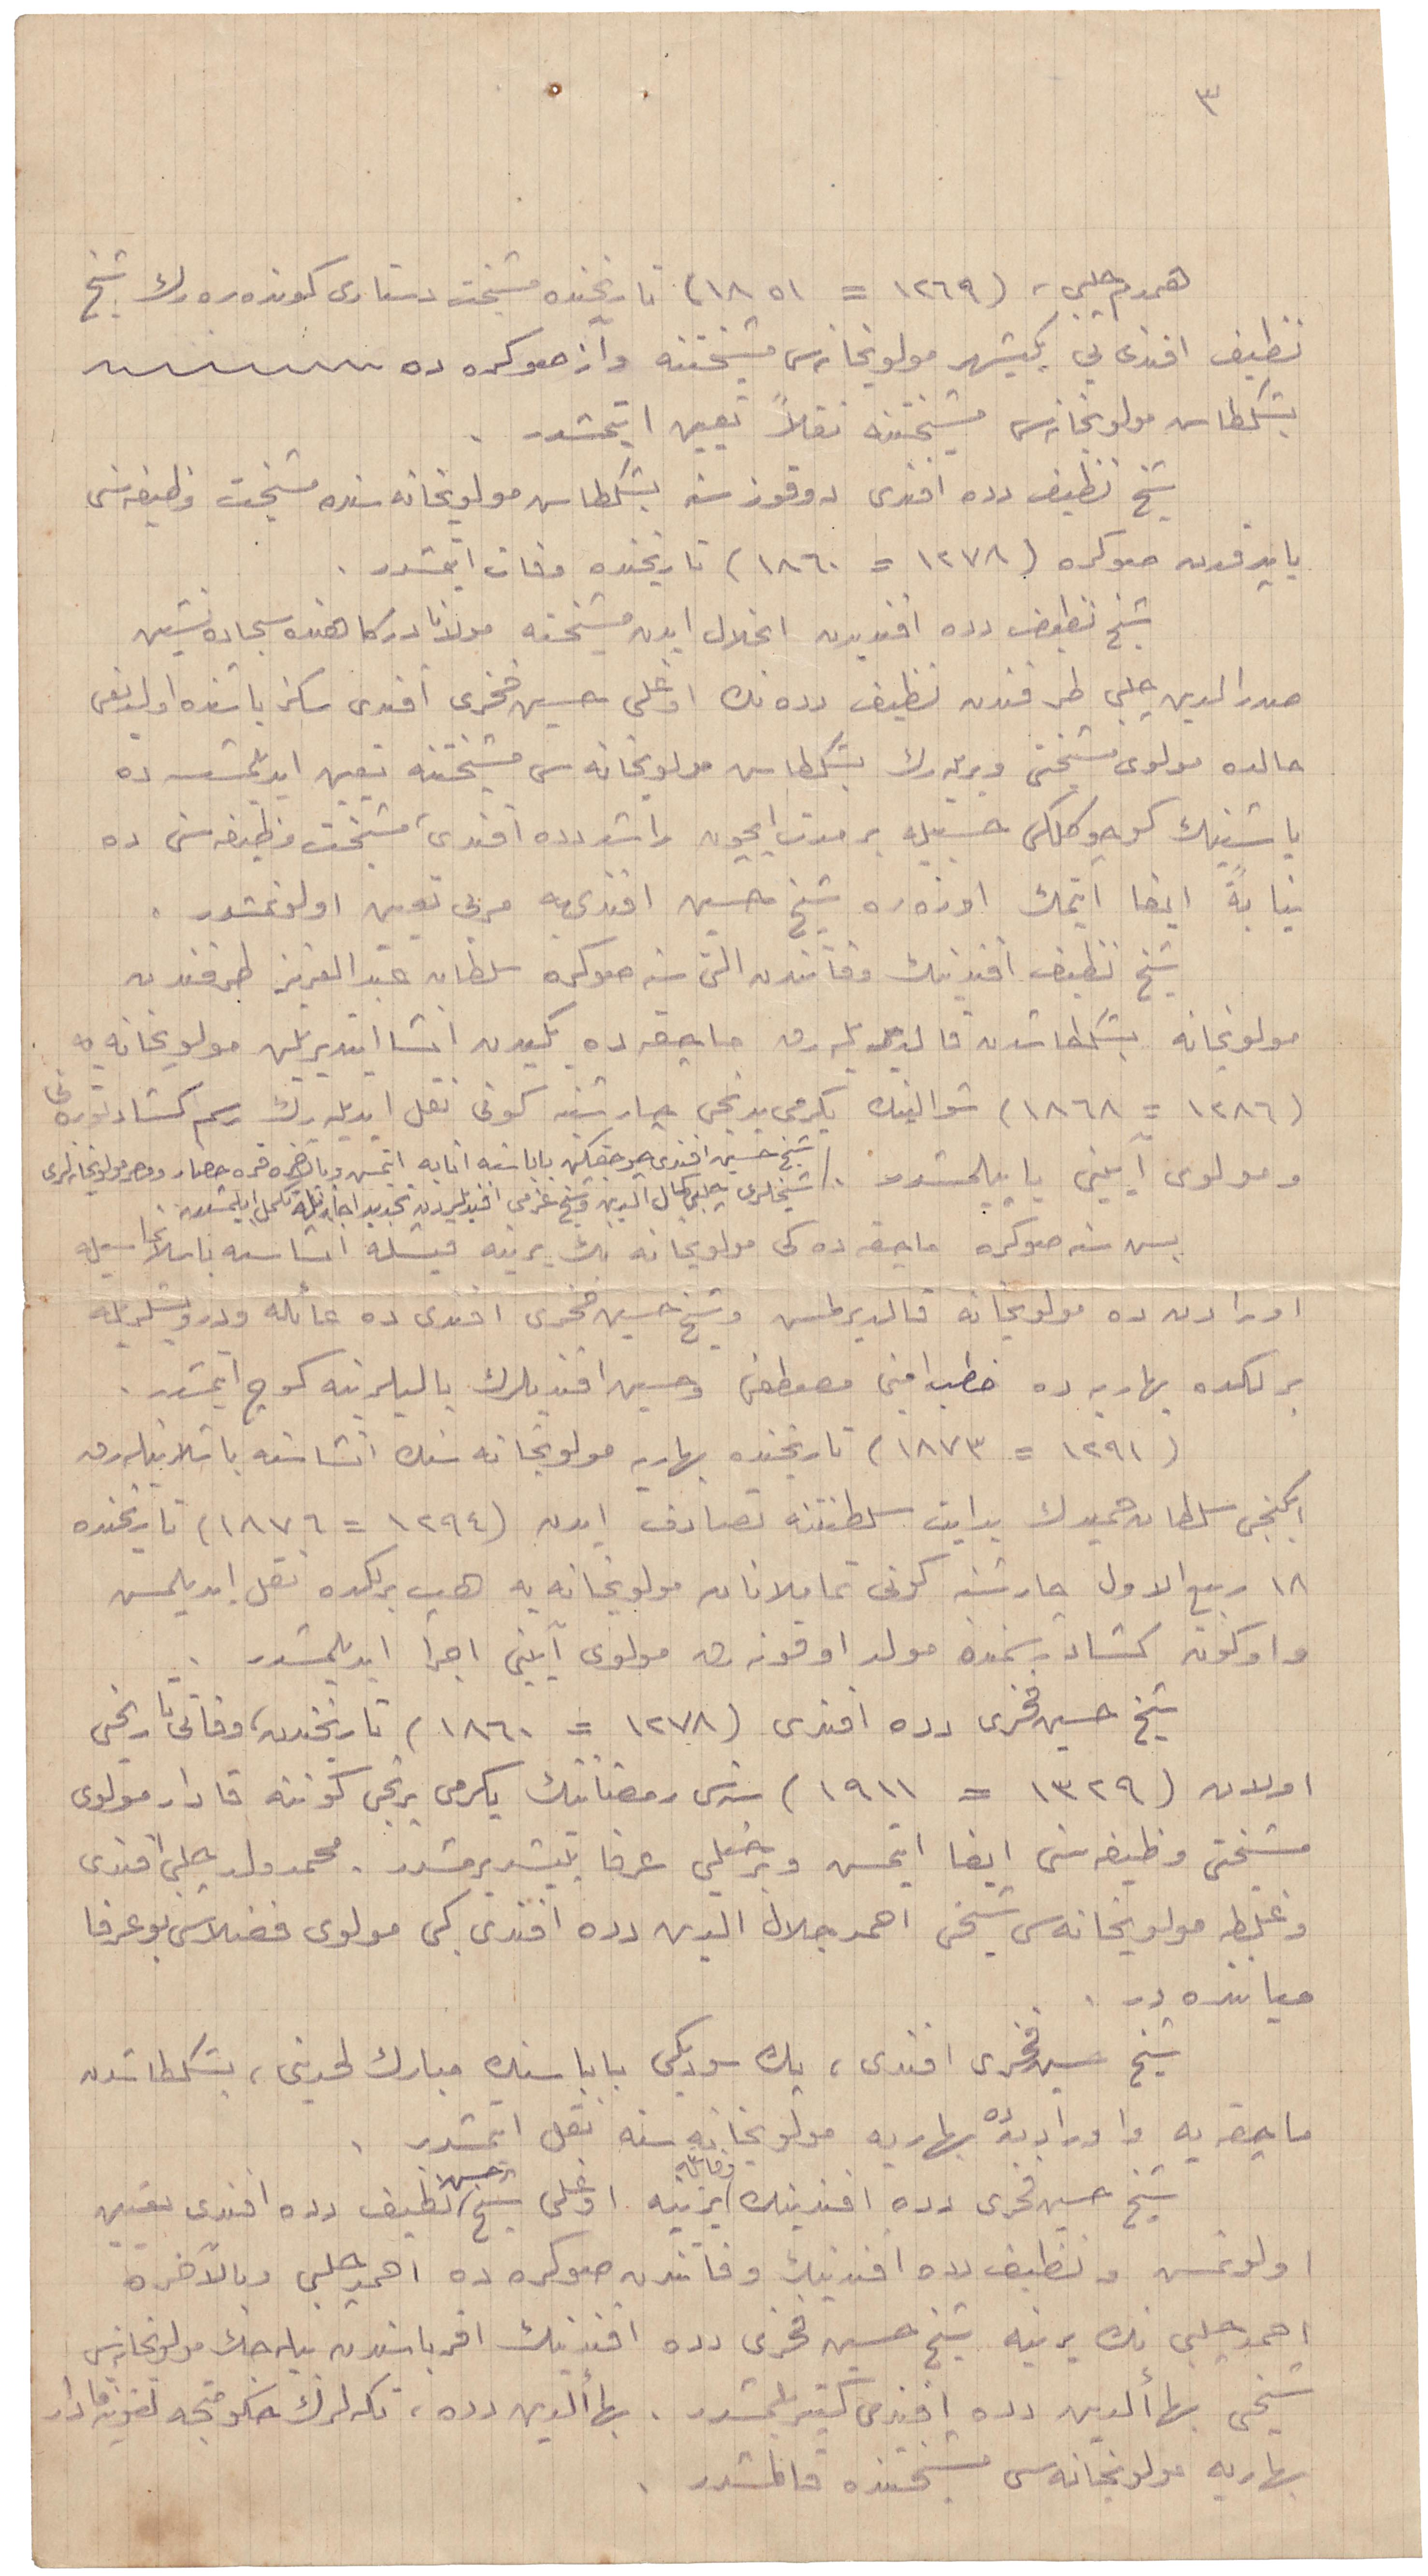 ٣
همدم چلبی، (١٢٦٩ = ١٨٥١) تاریخنده مشیخت دستاری كوندەرەرك شیخ
نظیف افندی یی یكیشهر مولویخانه‌سی مشیختنه وآز صوكره ده
بشكطاش مولویخانه‌سی مشیختنه نقلاً تعیین ایتمشدر .
شیخ نظیف دده افندی دوقوز سنه بشكطاش مولویخانه سنده مشیخت وظیفه‌سنی
یاپدقدن صوكره (١٢٧٨ = ١٨٦٠) تاریخنده وفات ایتمشدر .
شیخ نظیف دده افندیدن انحلال ایدن مشیخته مولانا دركاهنده سجاده نشین
صدرالدین چلبی طرفندن نظیف دده نك اوغلی حسین فخری افندی سكز یاشنده اولدیغی
حالده مولوی مشیختی ویریله‌رك بشكطاش مولویخانه سی مشیختنه تعیین ایدیلمشسه ده
یاشینك كوچوكلكی حسبیله بر مدت ایچون راشد دده افندی، مشیخت وظیفه‌سنی ده
نیابةً ایفا ایتمك اوزره شیخ حسین افندی‌یه مربی تعیین اولونمشدر .
شیخ نظیف افندینك وفاتندن التی سنه صوكره سلطان عبدالعزیز طرفندن
مولویخانه بشكطاشدن قالدیریله‌رق ماچقه ده یكیدن انشا ایتدیریلن مولویخانه یه
(١٢٨٦ = ١٨٦٨) شوالینك یكرمی یدنجی چارشنبه كونی نقل ایدیله‌رك رسم كشادی
ومولوی آیینی یاپیلمشدر . / شیخ حسین افندی چوجقكن باباسنه انابه ایتمش وبالآخره قره حصار ومصر مولویخانه‌لری
شیخلری چلبی كمال الدین وشیخ عزمی افندیلردن تجدید
بش سنه صوكره ماچقه ده كی مولویخانه نك یرینه قیشله انشاسنه باشلانماسیله
اورادن ده مولویخانه قالدیرلمش وشیخ حسین فخری افندی ده عائله ودرویشلریله
برلكده بهاریه ده خطب امینی مصطفی وحسین افندیلرك یالیلرینه كوچ ایتمشدر .
(١٢٩١ = ١٨٧٣) تاریخنده بهاریه مولویخانه سنك انشاسنه باشلانیله‌رق
ایكنجی سلطان حمیدك بدایت سلطنتنه تصادف ایدن (١٢٩٤ = ١٨٧٦) تاریخنده
١٨ ربیع الاول چارشنبه كونی تماملانان مولویخانه یه هپ برلكده نقل ایدیلمش
واوكون كشاد رسمنده مولد اوقونه‌رق مولوی آیینی اجرا ایدیلمشدر .
شیخ حسین فخری دده افندی (١٢٧٨ = ١٨٦٠) تاریخندن، وفاتی تاریخی
اولان (١٣٢٩ = ١٩١١) سنه‌سی رمضاننك یكرمی برنجی كوننه قادار مولوی
مشیختی وظیفه سنی ایفا ایتمش وبرخیلی عرفا یتیشدیرمشدر . محمد ولد چلبی افندی
وغلطه مولویخانه سی شیخی احمد جلال الدین دده افندی كبی مولوی فضلاسی بو عرفا
میاننده در .
شیخ حسین فخری افندی، پك سودیكی باباسنك مبارك لحدینی، بشكطاشدن
ماچقه یه واورادن ده بهاریه مولویخانه سنه نقل ایتمشدر .
شیخ حسین فخری دده افندینك / وفاتیله یرینه اوغلی شیخ / حسن نظیف دده افندی تعیین
اولونمش ونظیف دده افندینك وفاتندن صوكره ده احمد چلبی وبالآخره
احمد چلبی نك یرینه شیخ حسین فخری دده افندینك اقرباسندن بیله‌جك مولویخانه‌سی
شیخی بهاألدین دده افندی كتیریلمشدر . بهاألدین دده، تكه‌لرك حكومتجه لغوینه قادار
بهاریه مولویخانه سی مشیختنده قالمشدر .